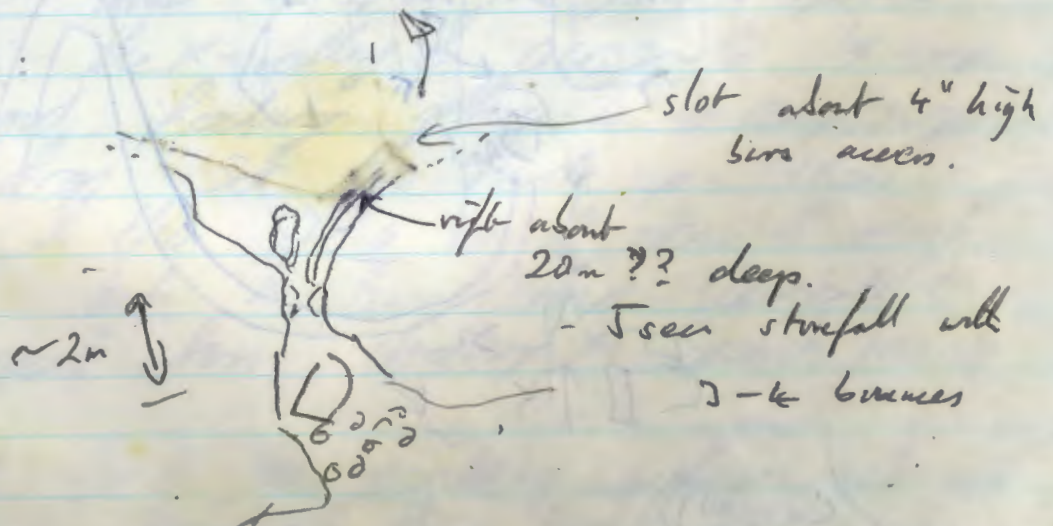 slot about 4" high
bars access.
rift about
20m ?? deep.
- 5 sec stonefall with
bounces
~2m